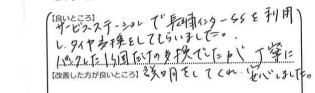 【良いところ】
サービスステーションで長浦インターSSを利用
し、タイヤ交換をしてもらいました。
パンクした1個だけの交換でしたが丁寧に
【改善した方が良いところ】説明をしてくれ、安心しました。